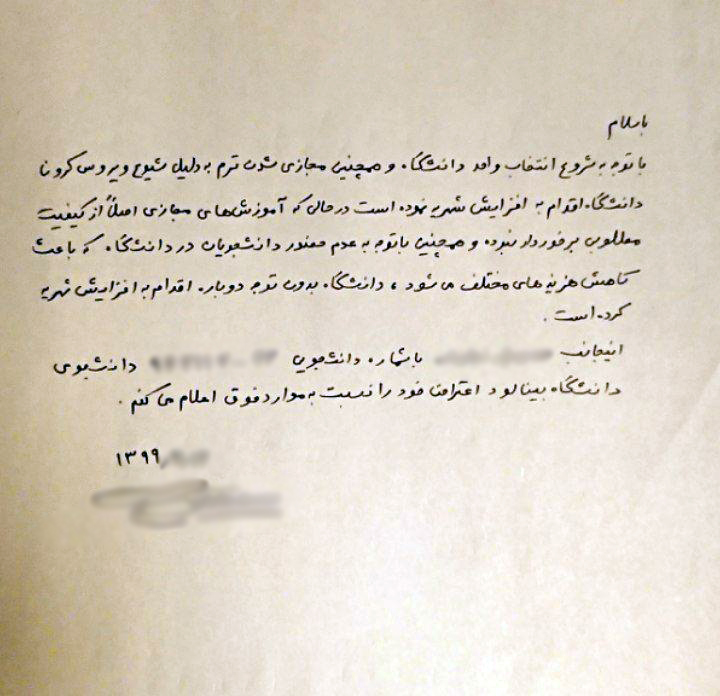 باسلام
باتوجه به شروع انتخاب واحد دانشگاه و همچنین مجازی شدن ترم به دلیل شیوع ویروس کرونا
دانشگاه اقدام به افزایش شهریه نموده است درحالی که آموزش‌های مجازی اصلاً از کیفیت
مطلوبی برخوردار نبوده و همچنین باتوجه به عدم حضور دانشجویان در دانشگاه که باعث
کاهش هزینه های مختلف می شود ، دانشگاه بدون توجه دوباره اقدام به افزایش شهریه
کرده است .
اینجانب باشماره دانشجویی دانشجوی
دانشگاه بینالود اعتراض خود را نسبت به موارد فوق اعلام می کنم .
۱۳۹۹